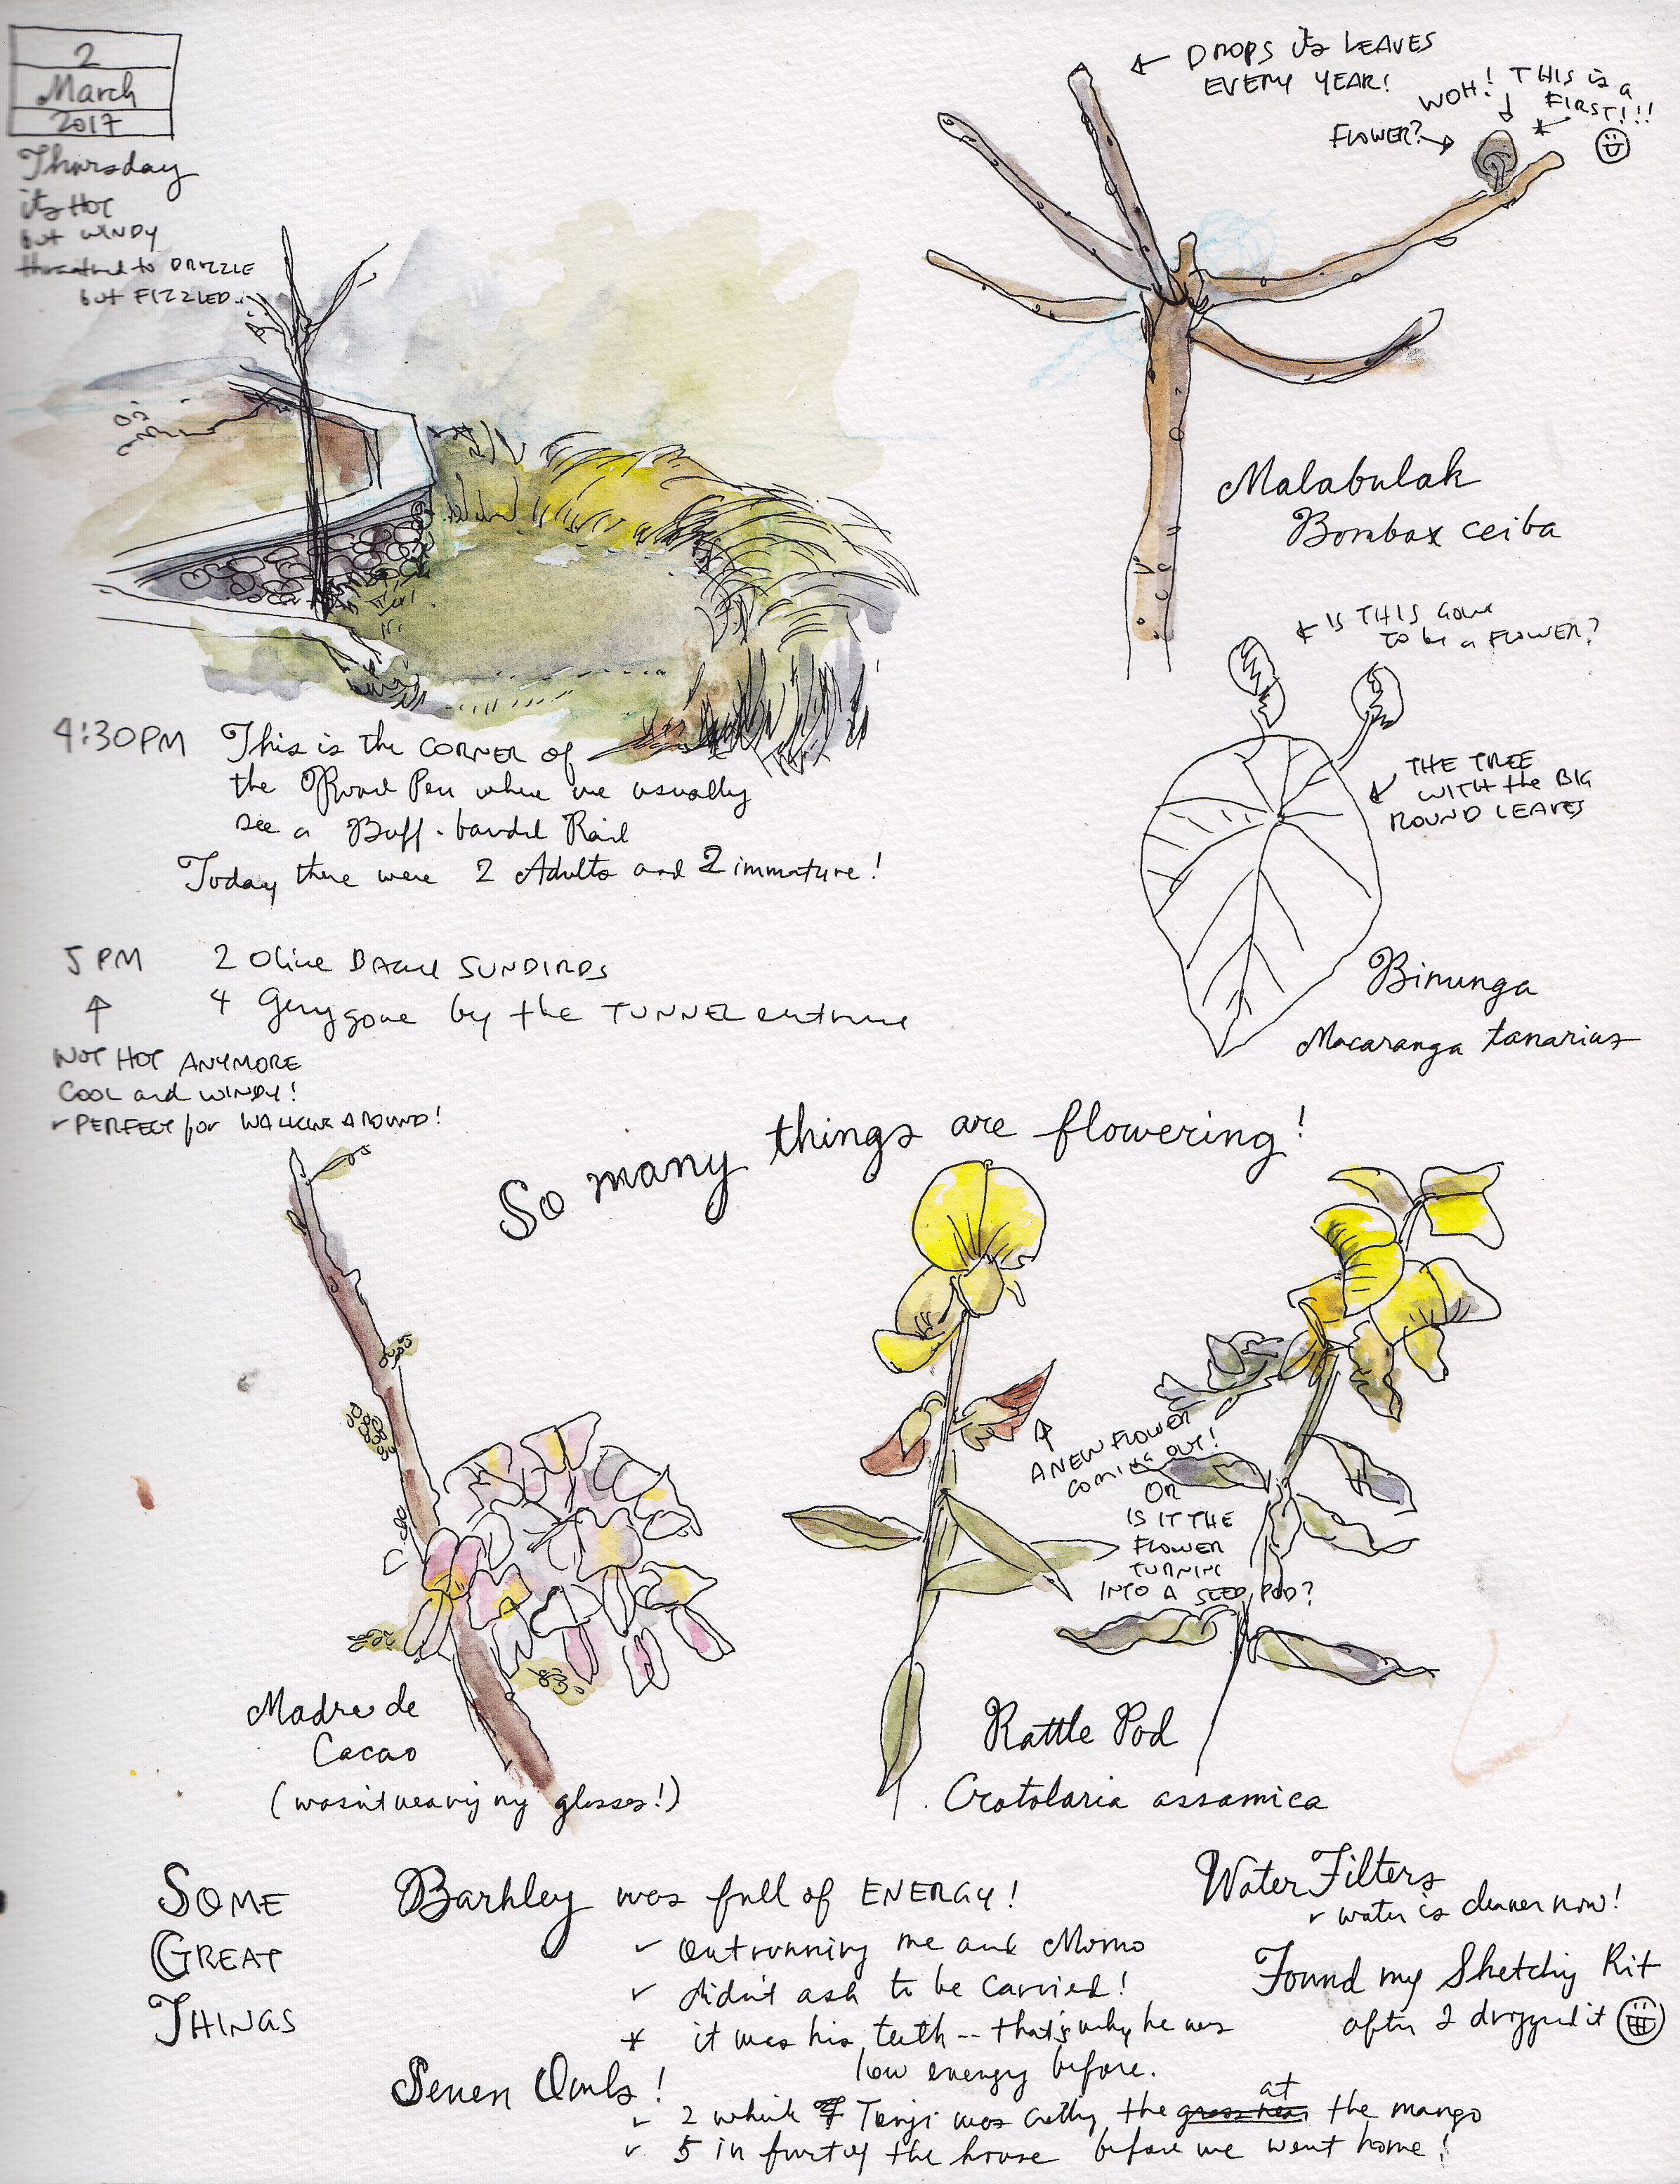 2
March
2017
Thursday
it's HOT
but WINDY
threatened to DRIZZLE
but FIZZLED..
DROPS its LEAVES
EVERY YEAR!
WOH! THIS is a
FIRST!!!
FLOWER?
Malabulak
Bombax ceiba
IS THIS GONE
TO be a FLOWER?
THE TREE
WITH the BIG
ROUND LEAVES
Binunga
Macaranga tanarius
4:30PM This is the CORNER of
the Pen where we usually
see a Buff-banded Rail
Today there were 2 Adults and 2 immature!
5 PM 2 Olive Backed SUNBIRDS
4 Gerygone by the TUNNEL entrance
NOT HOT ANYMORE
COOL and WINDY!
PERFECT for WALKING AROUND!
So many things are flowering!
A NEW FLOWER
coming OUT!
OR
IS IT THE
FLOWER
TURNING
INTO A SEED POD?
Madre de
Cacao
(wasn't wearing my glasses!)
Rattle Pod
Crotolaria assamica
SOME
GREAT
THINGS
Barkley was full of ENERGY!
outrunning me and Momo
didn't ask to be carried!
* it was his teeth -- that's why he was
low energy before.
Seven Owls!
2 while Tonji was cutting the grass near at the mango
5 in front of the house before we went home!
Water Filters
water is cleaner now!
Found my Sketching Kit
after I dropped it